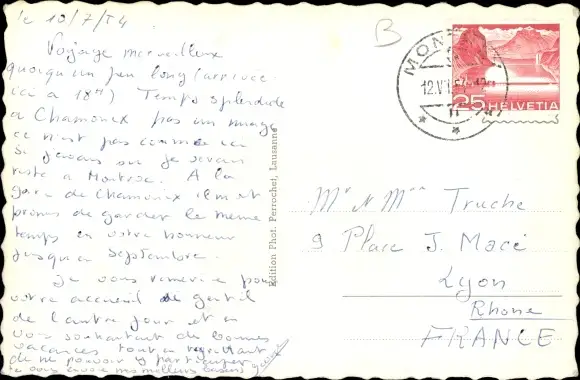 le 12/7/54.
Voyage merveilleux
quoiqu'un peu long (arrivée
ici à 18h) Temps splendide
à Chamonix pas un nuage
ce n'est pas comme ici
Si j'avais su je serais
resté à Montroc. A la
gare de Chamonix ils m'ont
promis de garder le même
temps en votre honneur
jusqu'en Septembre.
Je vous remercie pour
votre accueil si gentil
de l'autre jour et en
vous souhaitant de bonnes
vacances tout en regrettant
de ne pouvoir y participer
je vous envoie mes meilleurs baisers
Edition Phot. Perrochet, Lausanne
B
MON
12.VII.54
25 HELVETIA
Mr et Mme Truche
9 Place J. Macé
Lyon
Rhone
FRANCE